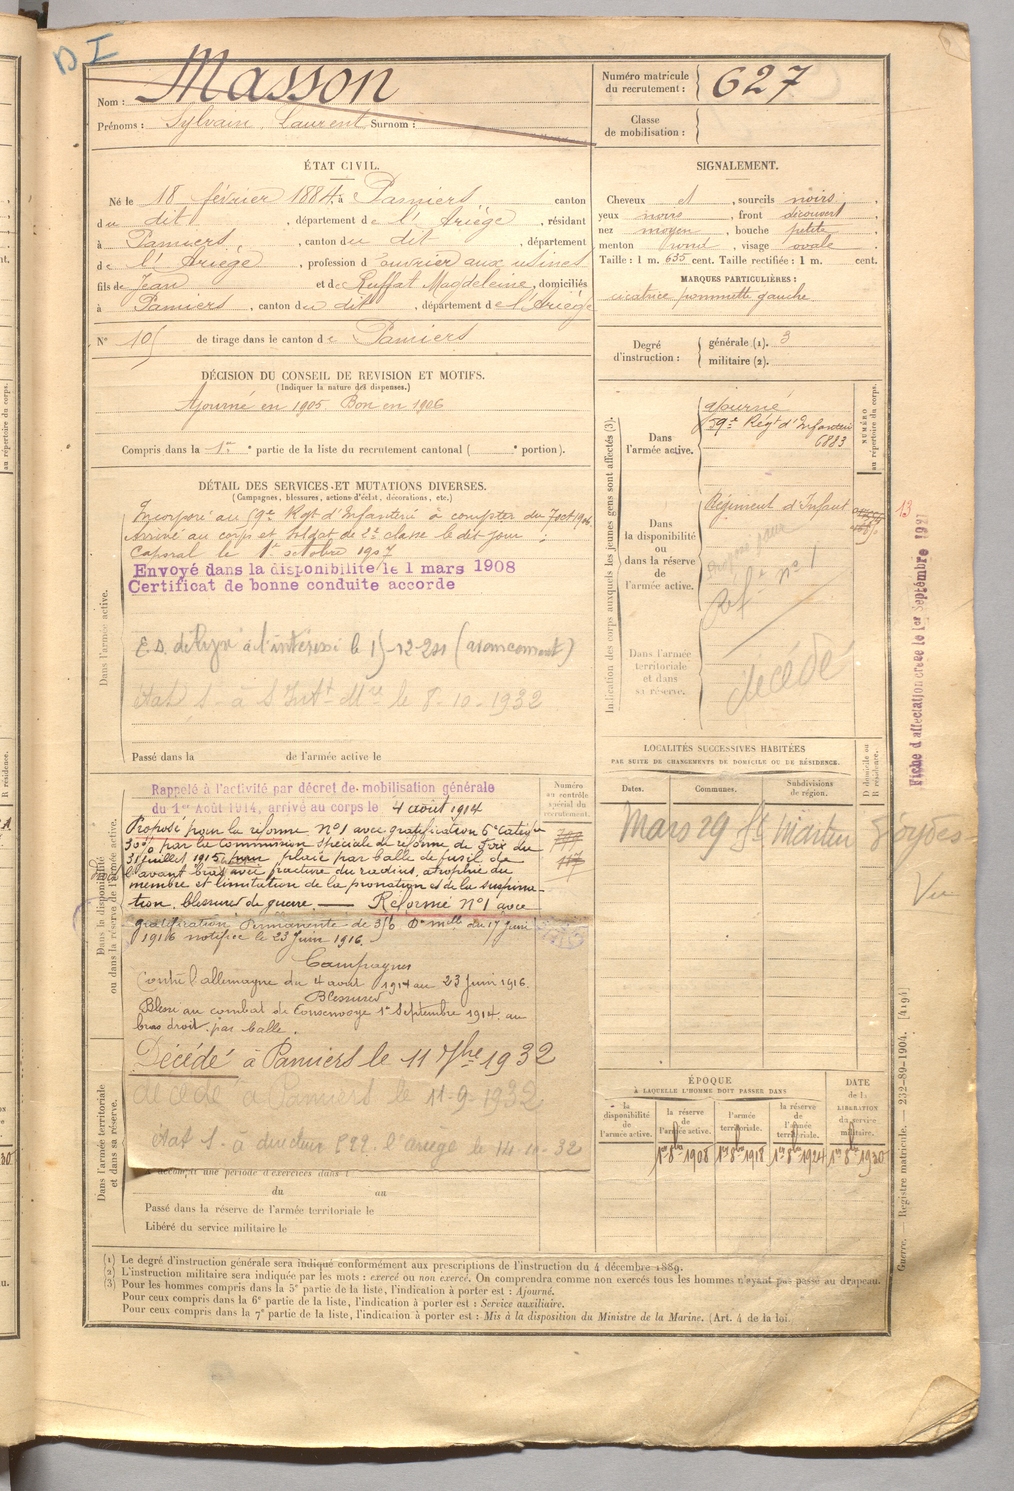 D I
Nom : Masson
Prénoms : Sylvain, Laurent Surnom :
Numéro matricule du recrutement : 627
Classe de mobilisation :
ÉTAT CIVIL.
Né le 18 février 1884, à Pamiers, canton
du dit, département de l'Ariège, résidant
à Pamiers, canton du dit, département
de l'Ariège, profession d'ouvrier aux usines
fils de Jean et de Ruffat Magdeleine, domiciliés
à Pamiers, canton du dit, département de l'Ariège
N° 105 de tirage dans le canton de Pamiers
SIGNALEMENT.
Cheveux et, sourcils noirs,
yeux noirs, front découvert,
nez moyen, bouche petite,
menton rond, visage ovale.
Taille : 1 m. 635 cent. Taille rectifiée : 1 m. cent.
MARQUES PARTICULIÈRES :
cicatrice pommette gauche
Degré d'instruction :
générale (1). 3
militaire (2).
DÉCISION DU CONSEIL DE REVISION ET MOTIFS.
(Indiquer la nature des dispenses.)
Ajourné en 1905. Bon en 1906
Compris dans la 1re partie de la liste du recrutement cantonal ( e portion).
DÉTAIL DES SERVICES ET MUTATIONS DIVERSES.
(Campagnes, blessures, actions d'éclat, décorations, etc.)
Dans l'armée active.
Incorporé au 59e Rgt d'Infanterie à compter du 7 oct 1906
Arrivé au corps et soldat de 2e classe le dit jour ;
Caporal le 1er octobre 1907
Envoyé dans la disponibilité le 1 mars 1908
Certificat de bonne conduite accorde
à l'intéressé le 15-12-24 (avancement)
état S à S Int Mre le 8-10-1932
Passé dans la de l'armée active le
Indication des corps auxquels les jeunes gens sont affectés (3).
NUMÉRO au répertoire du corps.
Dans l'armée active.
ajourné
59e Régt d'Infanterie
6883
Dans la disponibilité ou dans la réserve de l'armée active.
Régiment d'Infant
Réf. n° 1
Dans l'armée territoriale et dans sa réserve.
décédé
13
Fiche d'affectation créée le 1er Septembre 1921
LOCALITÉS SUCCESSIVES HABITÉES
PAR SUITE DE CHANGEMENTS DE DOMICILE OU DE RÉSIDENCE.
Dates. Communes. Subdivisions de région. D domicile ou R résidence.
Mars 29 St Martin
Vu
Dans la disponibilité ou dans la réserve de l'armée active.
Numéro au contrôle spécial du recrutement.
Rappelé à l'activité par décret de mobilisation générale
du 1er Août 1914, arrivé au corps le 4 août 1914
Proposé pour la réforme N°1 avec gratification 6e catégie
30% par la commission spéciale de réforme de Foix du
31 juillet 1915 pour plaie par balle de fusil de
l'avant bras droit avec fracture du radius, atrophie du
membre et limitation de la pronation et de la supina-
tion. blessures de guerre. — Réformé N°1 avec
gratification Permanente de 3/6 Don mlle du 17 Juin
1916 notifiée le 23 Juin 1916.
Campagnes
Contre l'allemagne du 4 août 1914 au 23 Juin 1916.
Blessures
Blessé au combat de Consenvoye 1er Septembre 1914. au
bras droit par balle.
Décédé à Pamiers le 11 7bre 1932
décédé à Pamiers le 11-9-1932
état S. à l'ariège
Dans l'armée territoriale et dans sa réserve.
A accompli une période d'exercices dans l
du au
Passé dans la réserve de l'armée territoriale le
Libéré du service militaire le
ÉPOQUE
À LAQUELLE L'HOMME DOIT PASSER DANS
la disponibilité de l'armée active. la réserve de l'armée active. l'armée territoriale. la réserve de l'armée territoriale.
DATE de la LIBÉRATION du service militaire.
1er 8bre 1908 1er 8bre 1918 1er 8bre 1924 1er 8bre 1930
Guerre. Registre matricule. — 232-89-1904. [4194]
(1) Le degré d'instruction générale sera indiqué conformément aux prescriptions de l'instruction du 4 décembre 1889.
(2) L'instruction militaire sera indiquée par les mots : exercé ou non exercé. On comprendra comme non exercés tous les hommes n'ayant pas passé au drapeau.
(3) Pour les hommes compris dans la 5e partie de la liste, l'indication à porter est : Ajourné.
Pour ceux compris dans la 6e partie de la liste, l'indication à porter est : Service auxiliaire.
Pour ceux compris dans la 7e partie de la liste, l'indication à porter est : Mis à la disposition du Ministre de la Marine. (Art. 4 de la loi.